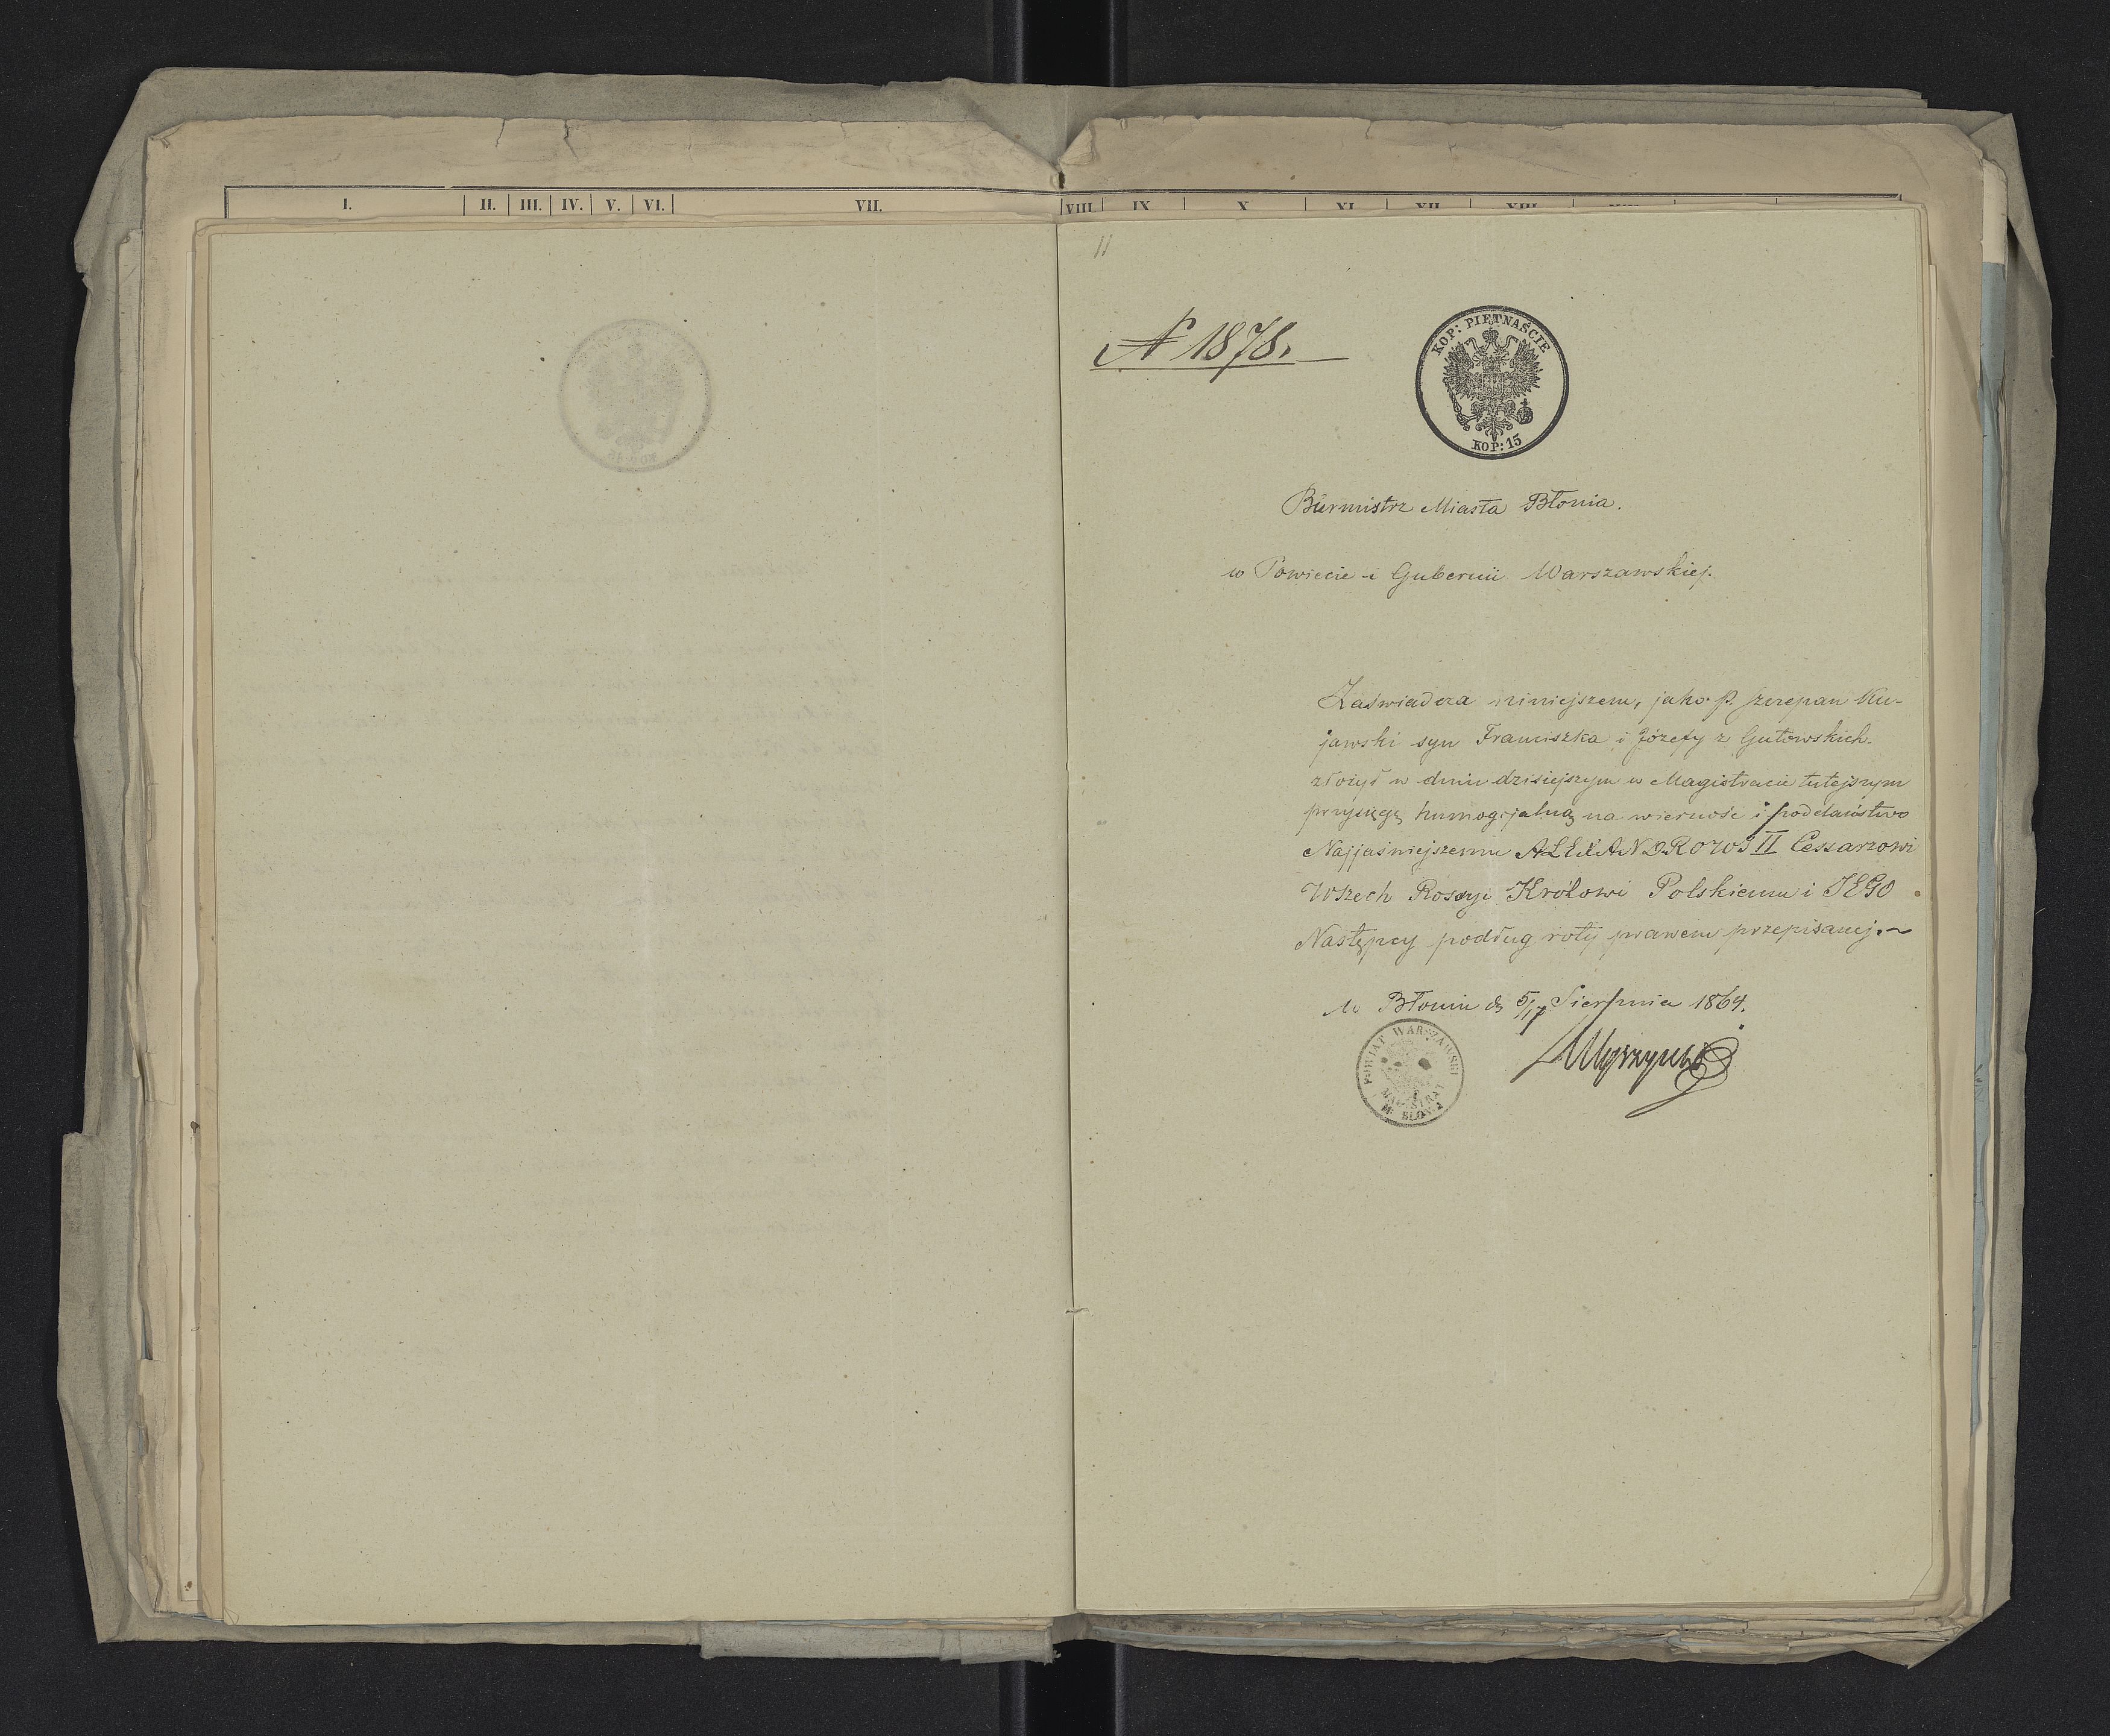 I. II. III. IV. V. VI. VII. VIII. IX. X. XI. XII. XIII.
11
N 1878.
KOP: PIĘTNAŚCIE
KOP: 15
Burmistrz Miasta Błonia.
w Powiecie i Gubernii Warszawskiej.
Zaświadcza niniejszem, jako P. Szczepan Ku-
jawski syn Franciszka i Józefy z Gutowskich
złożył w dniu dzisiejszym w Magistracie tutejszym
przysięgę humogijalną na wierność i poddaństwo
Najjaśniejszemu ALEXANDROWI II Cessarzowi
Wszech Rossyi Królowi Polskiemu i JEGO
Następcy podług roty prawem przepisanej.
w Błoniu d. 5/17 Sierpnia 1864.
POWIAT WARSZAWSKI
MAGISTRAT
M. BŁONIA